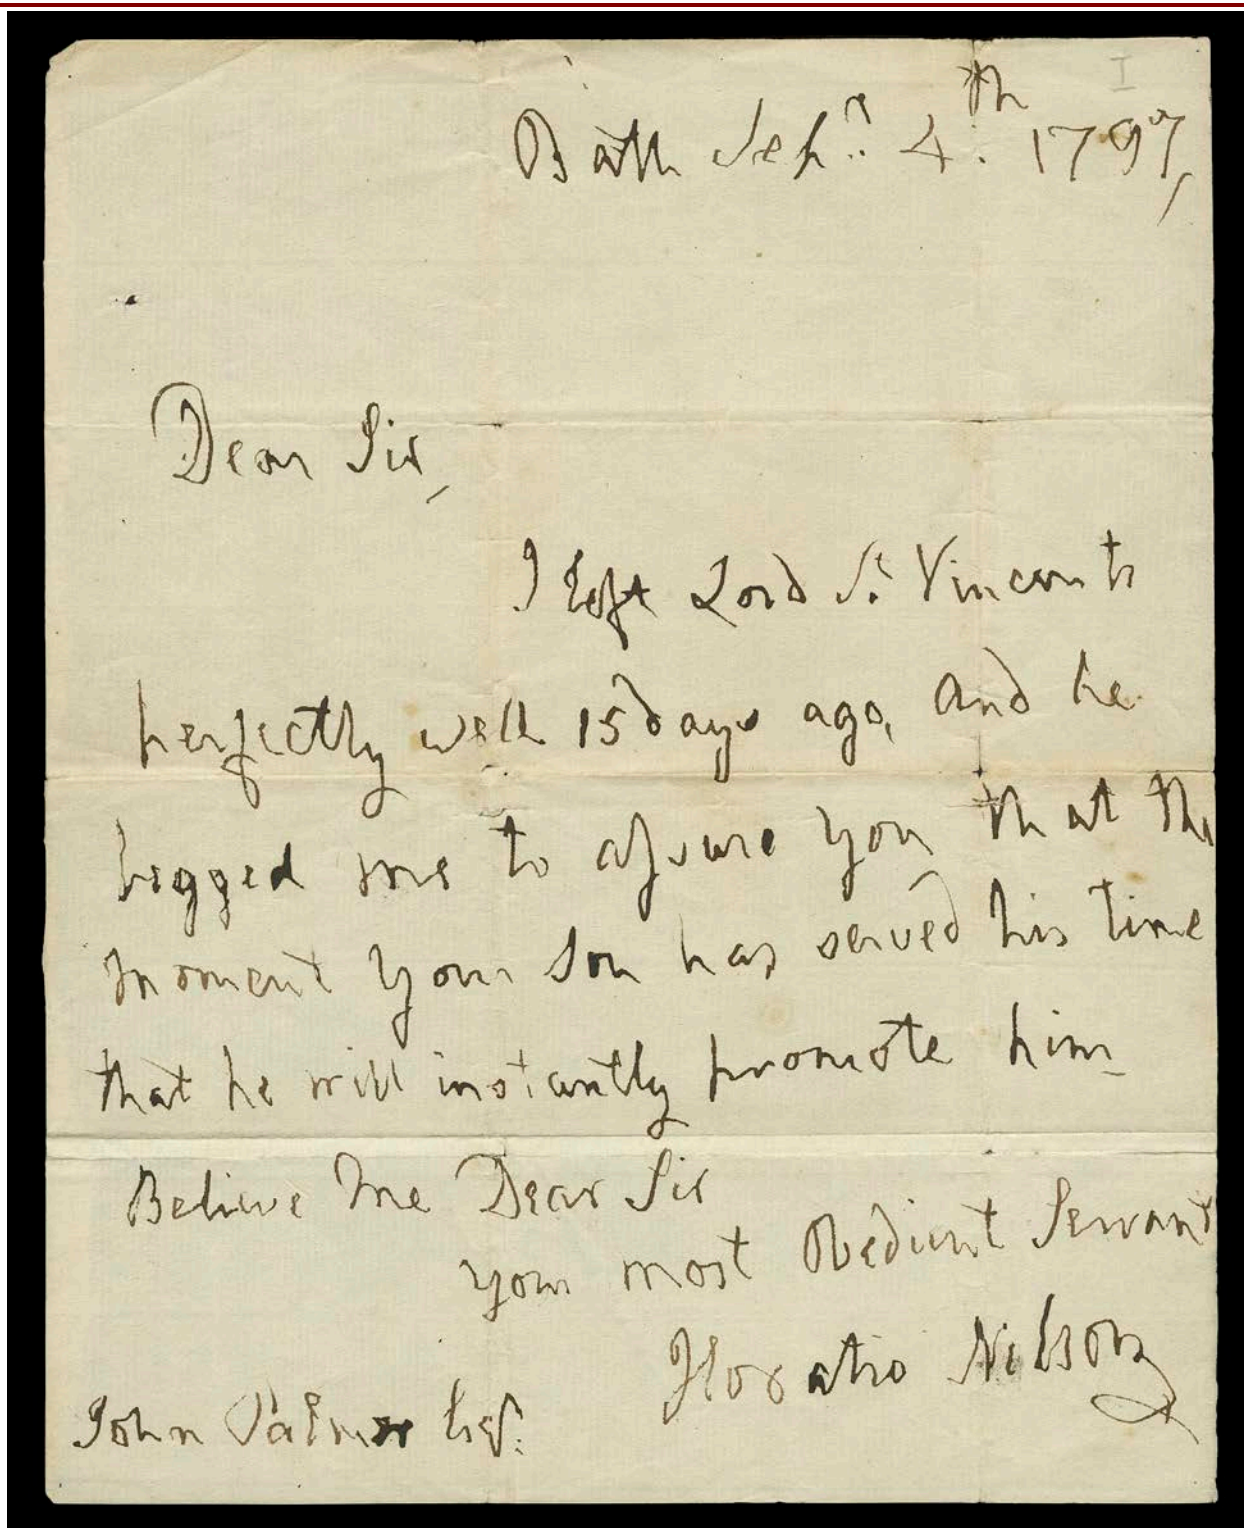 I
Bath Sepr. 4.th 1797,
Dear Sir,
I left Lord St. Vincents
perfectly well 15 days ago, and he
begged me to assure you that the
moment your son has served his time
that he will instantly promote him
Believe Me Dear Sir
your most Obedient Servant
Horatio Nelson
John Palmer Esq.